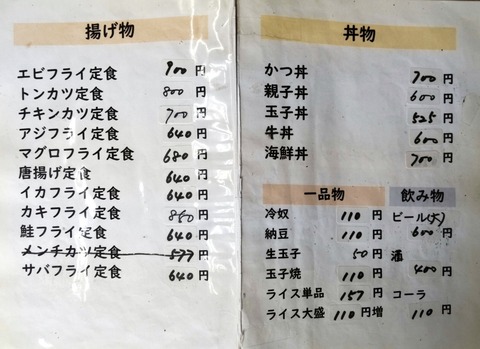 揚げ物
エビフライ定食 900円
トンカツ定食 800円
チキンカツ定食 700円
アジフライ定食 640円
マグロフライ定食 680円
唐揚げ定食 640円
イカフライ定食 640円
カキフライ定食 860円
鮭フライ定食 640円
メンチカツ定食 577円
サバフライ定食 640円
丼物
かつ丼 700円
親子丼 600円
玉子丼 525円
牛丼 600円
海鮮丼 700円
一品物
冷奴 110円
納豆 110円
生玉子 50円
玉子焼 110円
ライス単品 157円
ライス大盛 110円増
飲み物
ビール(大)
600円
酒
400円
コーラ
110円